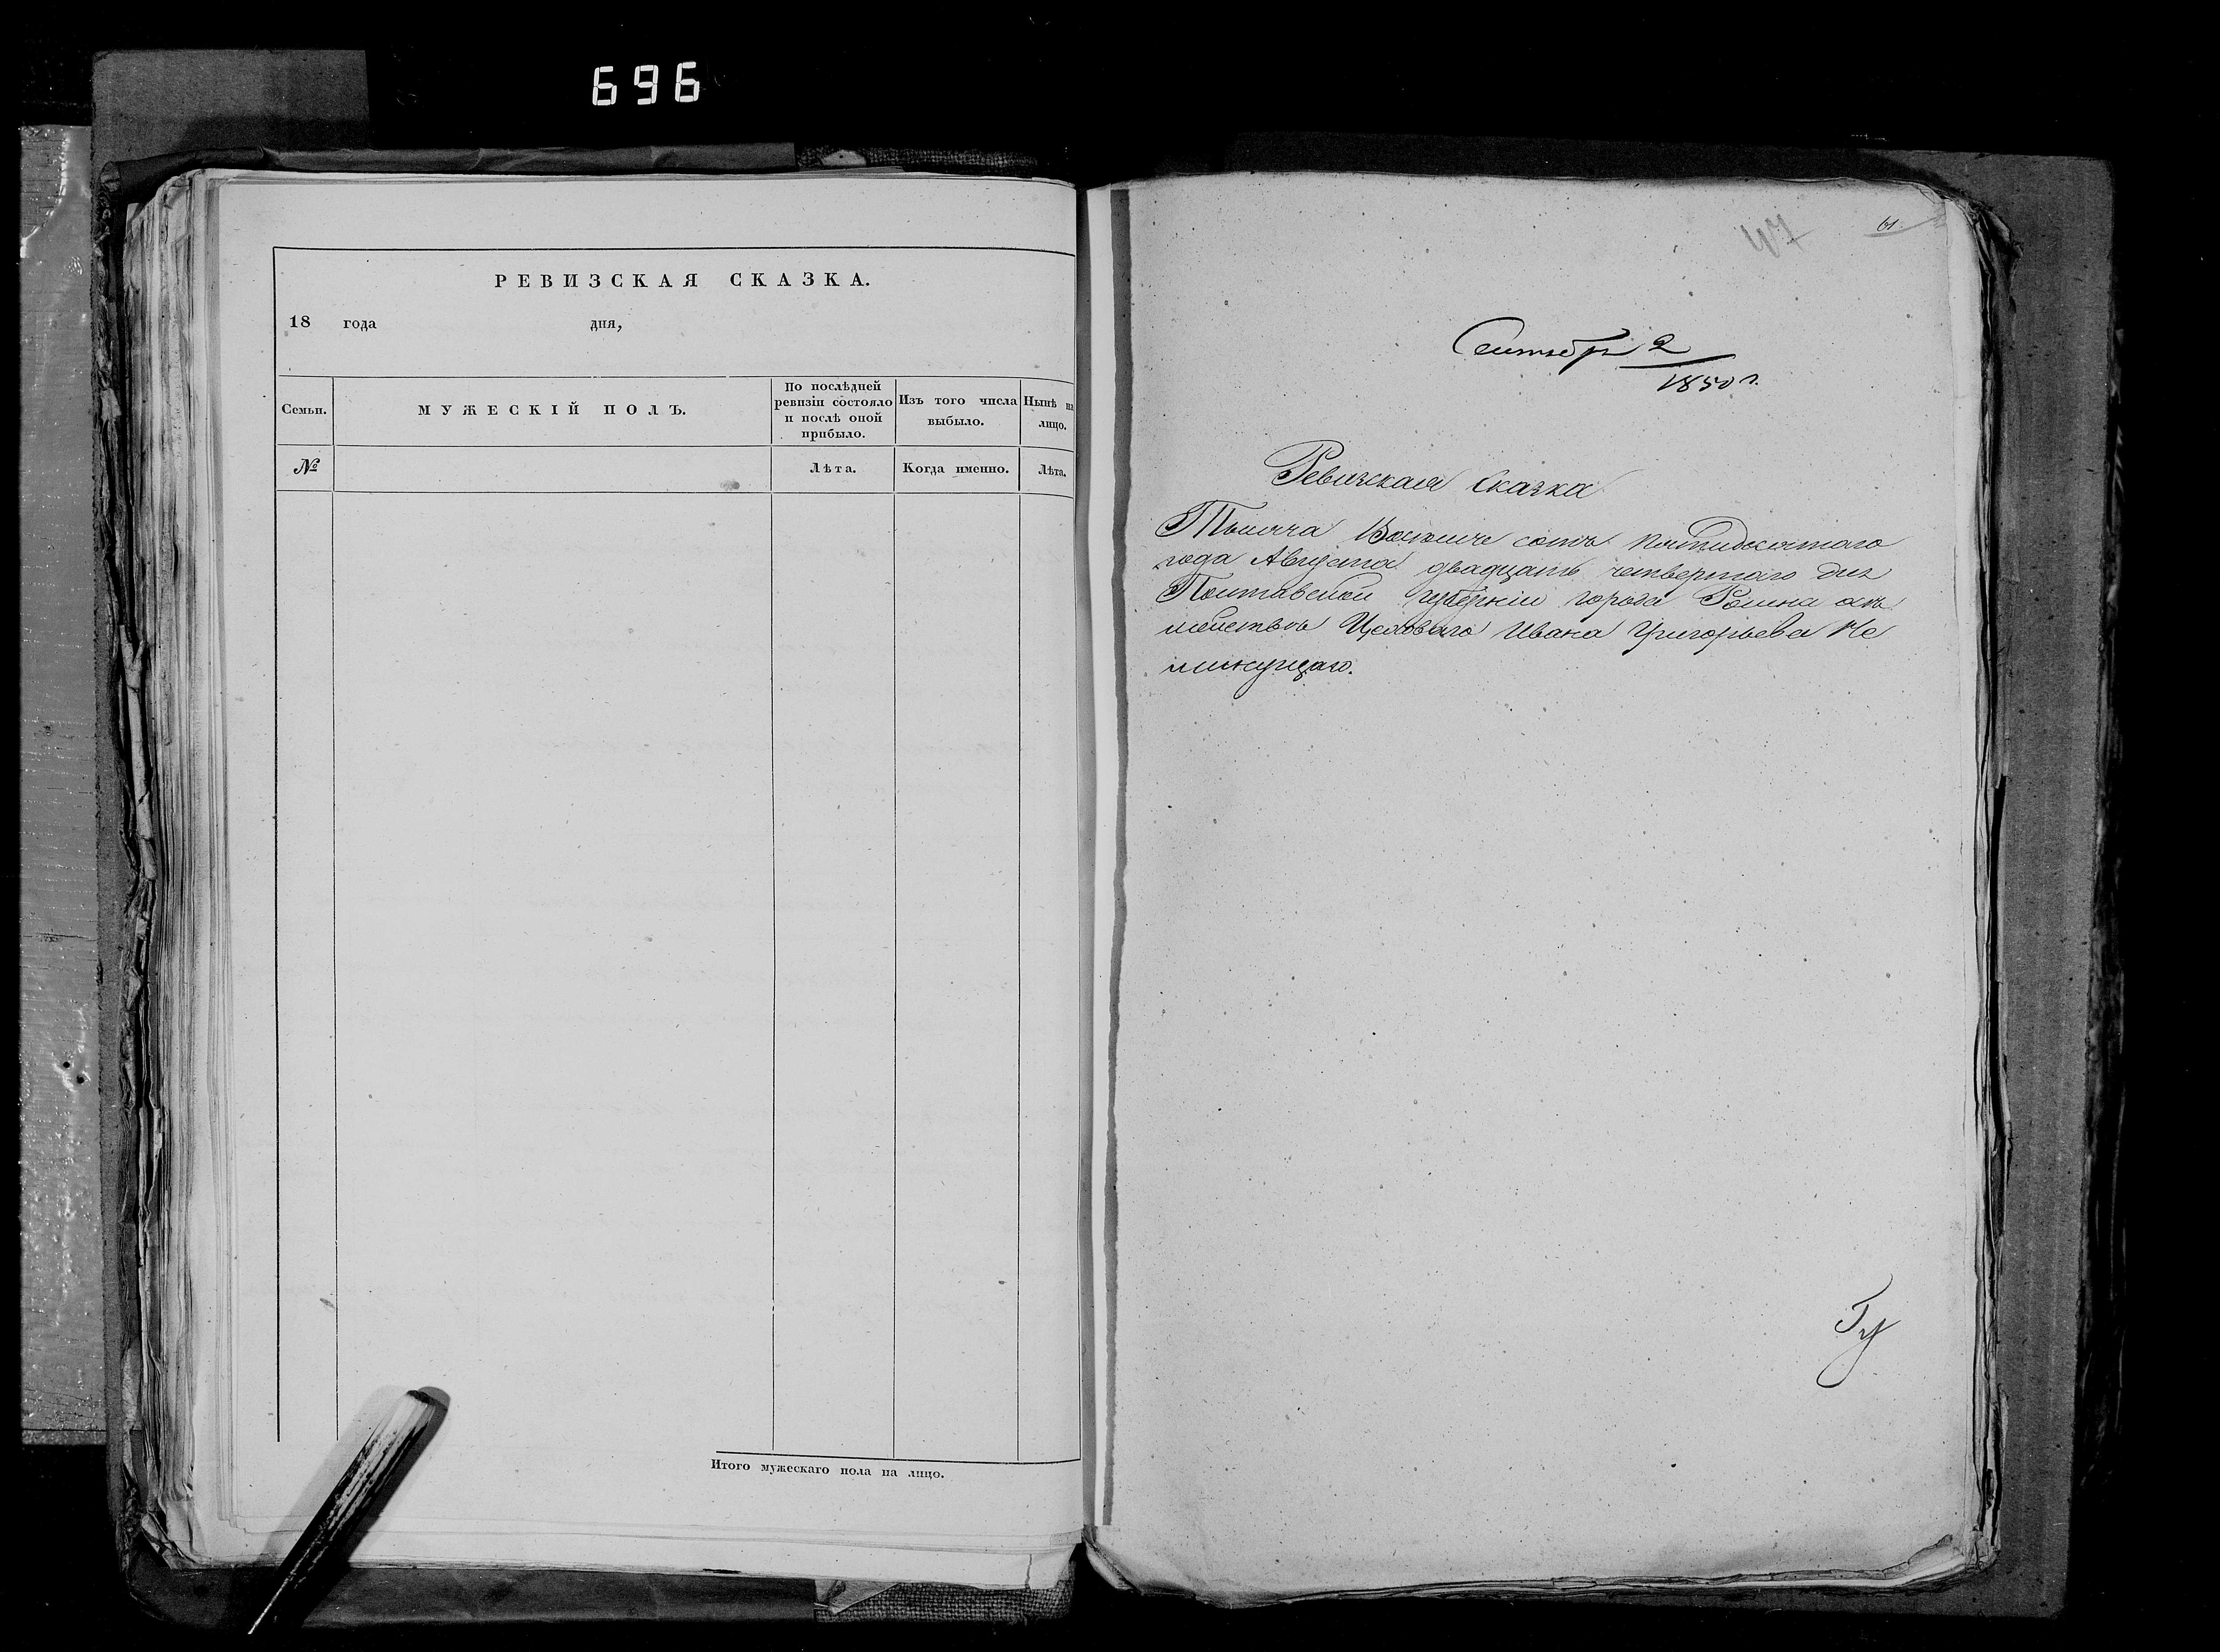 696
РЕВИЗСКАЯ СКАЗКА.
18 года дня,
Семьи.
МУЖЕСКІЙ ПОЛЪ.
По послѣдней
ревизіи состояло
и послѣ оной
прибыло.
Изъ того числа
выбыло.
Нынѣ на
лицо.
№
Лѣта.
Когда именно.
Лѣта.
Итого мужескаго пола на лицо.
47
61.
Сентября 2
1850 г.
Ревизская сказка
Тысяча Восемь сотъ пятидесятаго
года Августа двадцать четвертаго дня
Полтавской губерніи города Ромна
Цеховаго Ивана Григорьева Не
минущаго.